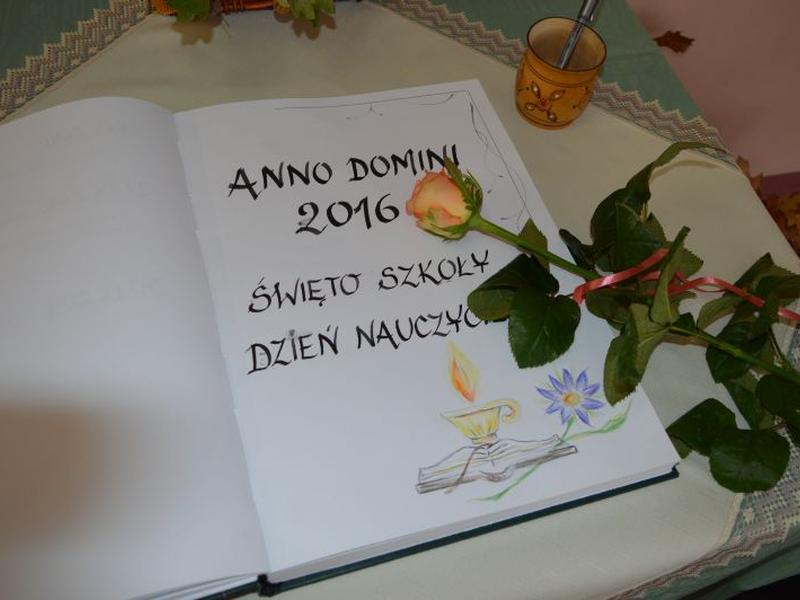 ANNO DOMINI
2016
ŚWIĘTO SZKOŁY
DZIEŃ